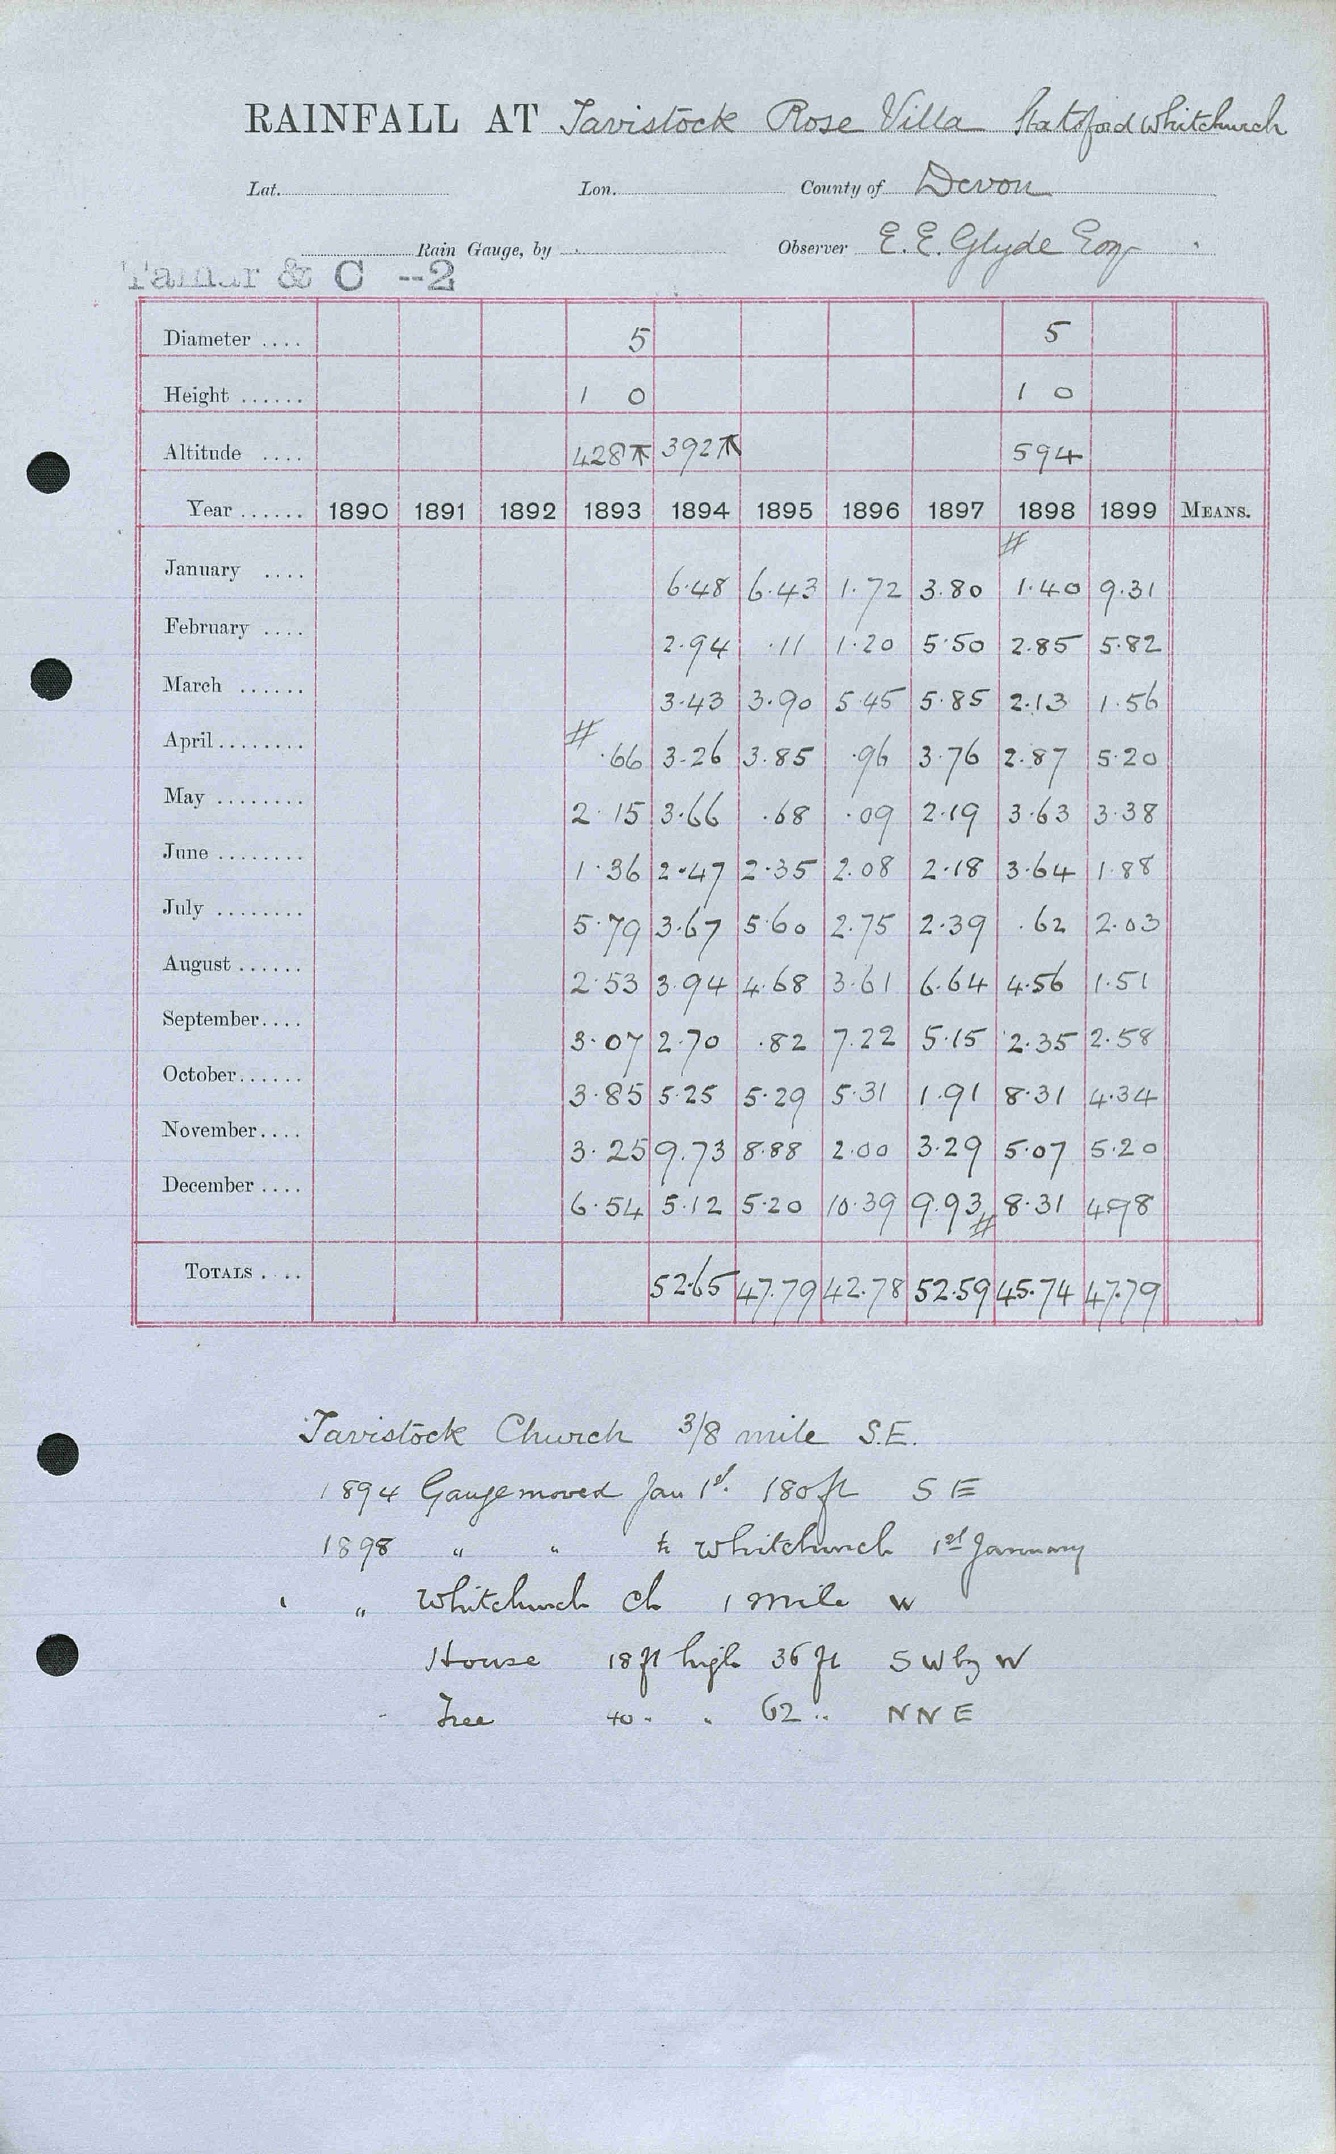 RAINFALL AT Tavistock Rose Villa Whitchurch
Lat. Lon. County of Devon
Rain Gauge, by Observer E. E. Glyde Esq
Tamar & C --2
Diameter .... 5 5
Height ...... 1 0 1 0
Altitude .... 428 392 594
Year ...... 1890 1891 1892 1893 1894 1895 1896 1897 1898 1899 MEANS.
#
January .... 6.48 6.43 1.72 3.80 1.40 9.31
February .... 2.94 .11 1.20 5.50 2.85 5.82
March ...... 3.43 3.90 5.45 5.85 2.13 1.56
April ........ # .66 3.26 3.85 .96 3.76 2.87 5.20
May ........ 2.15 3.66 .68 .09 2.19 3.63 3.38
June ........ 1.36 2.47 2.35 2.08 2.18 3.64 1.88
July ........ 5.79 3.67 5.60 2.75 2.39 .62 2.03
August ...... 2.53 3.94 4.68 3.61 6.64 4.56 1.51
September .... 3.07 2.70 .82 7.22 5.15 2.35 2.58
October ...... 3.85 5.25 5.29 5.31 1.91 8.31 4.34
November .... 3.25 9.73 8.88 2.00 3.29 5.07 5.20
December .... 6.54 5.12 5.20 10.39 9.93 # 8.31 4.98
TOTALS .... 52.65 47.79 42.78 52.59 45.74 47.79
Tavistock Church 3/8 mile S.E.
1894 Gauge moved Jan 1st. 180 ft S E
1898 " " to Whitchurch 1st January
" " Whitchurch Ch 1 mile W
House 18 ft high 36 ft S W by W
Tree 40 " " 62 " N N E